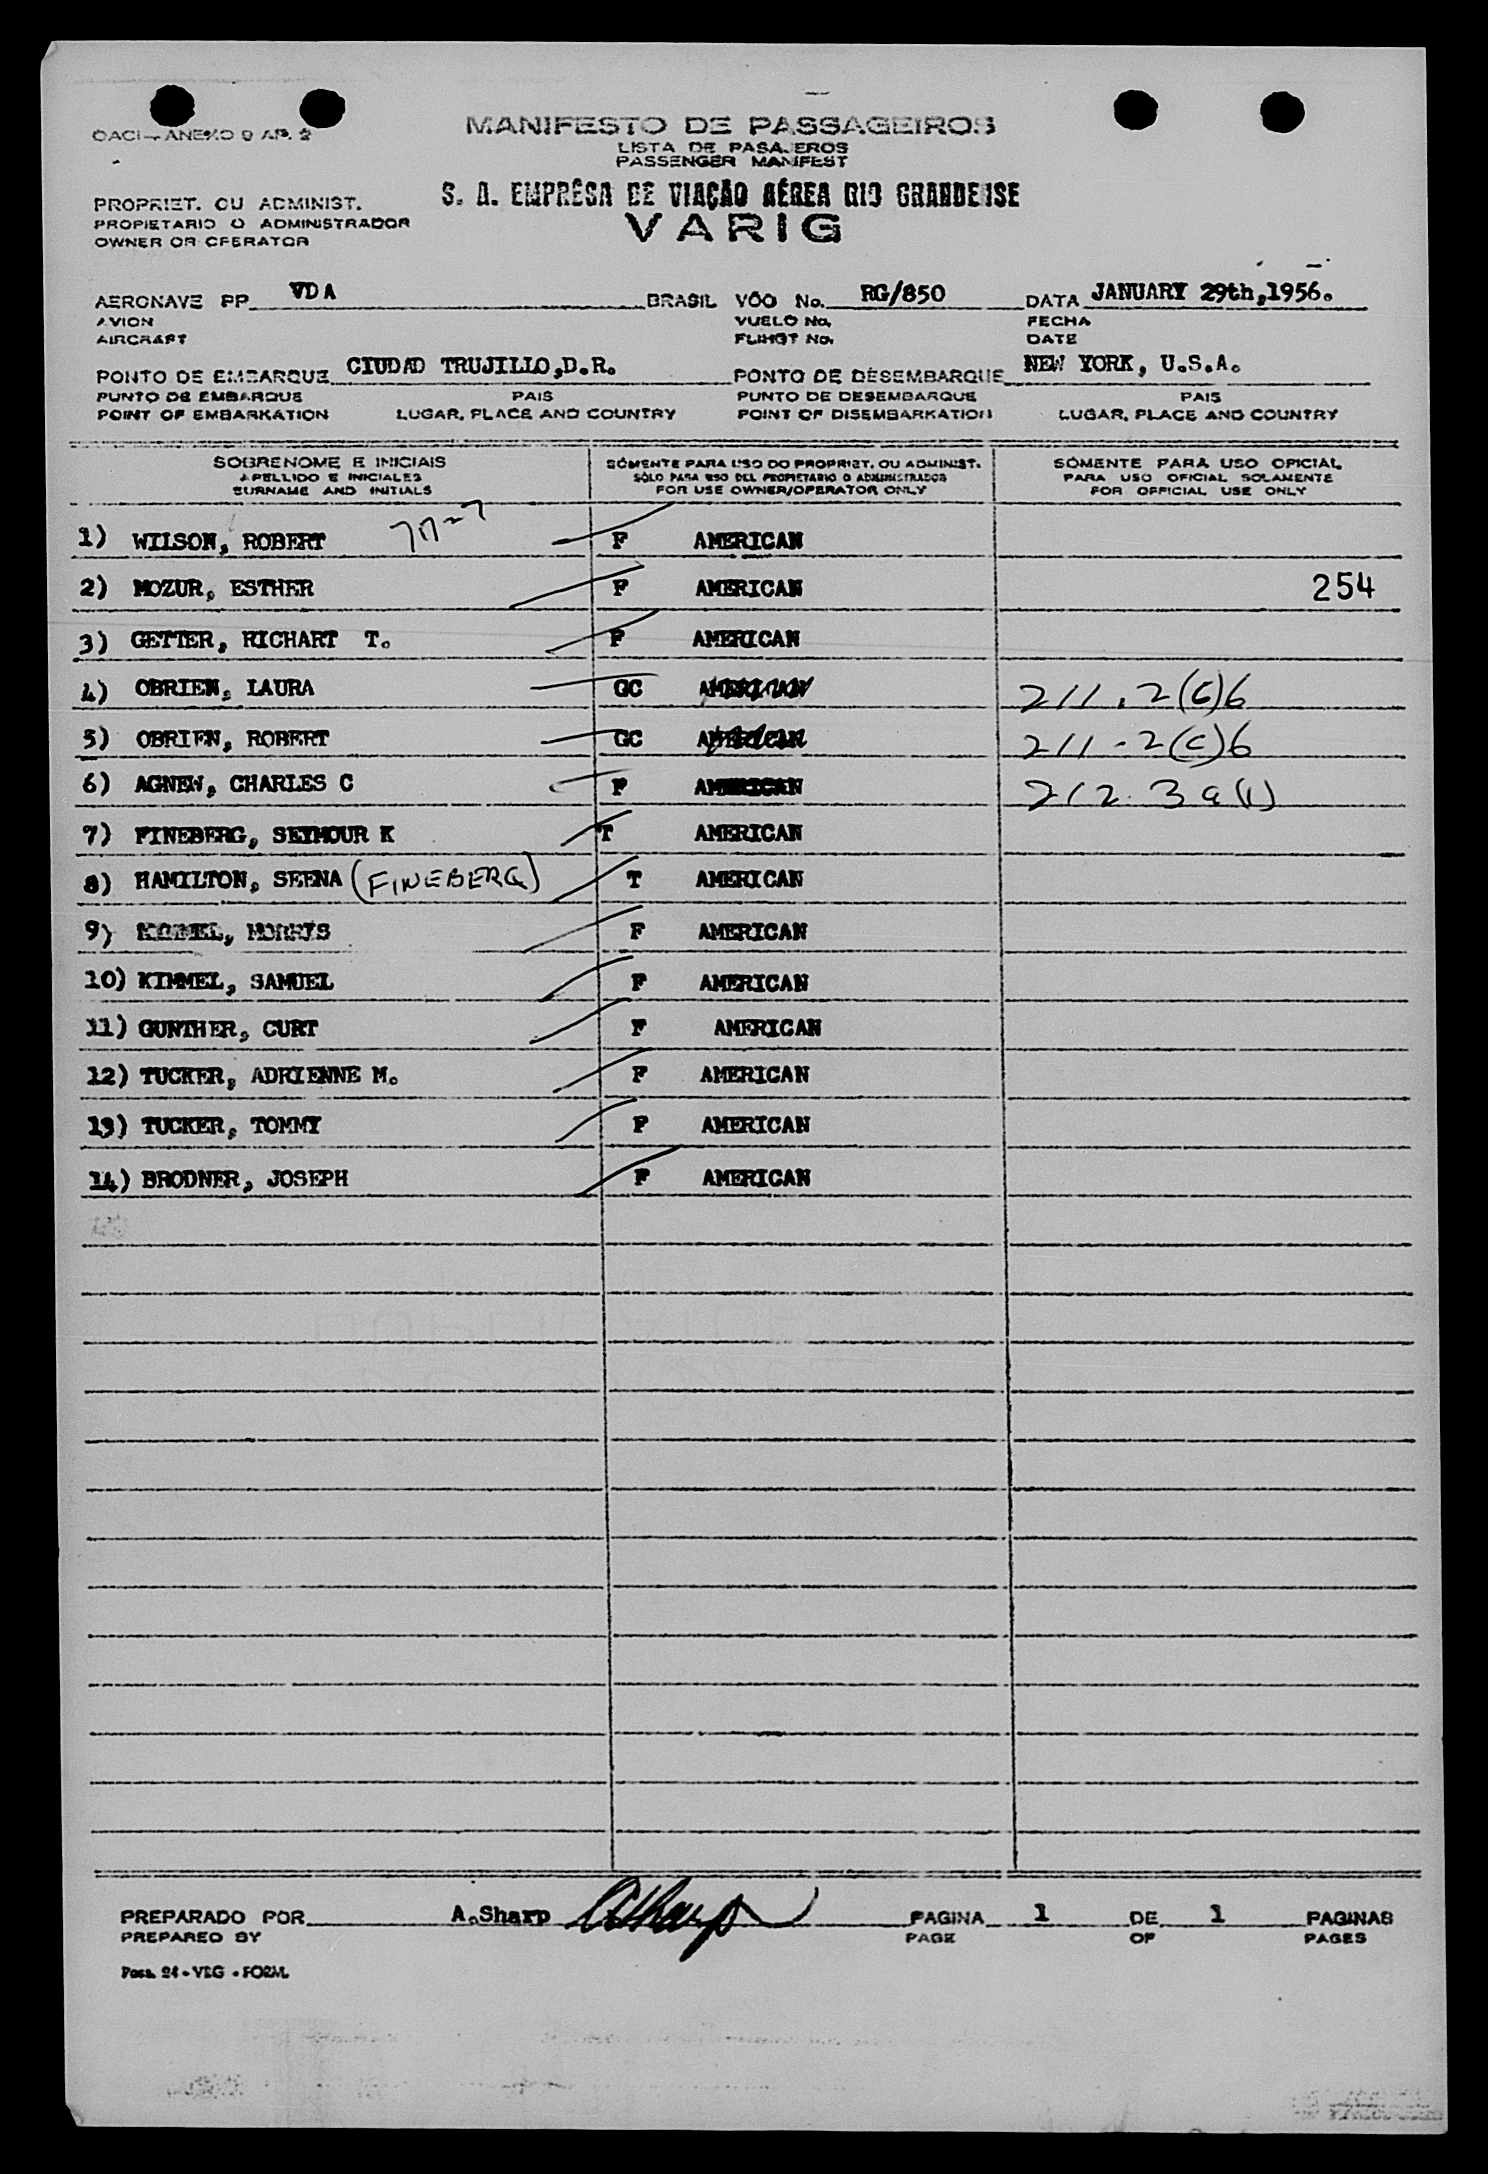 OACI - ANEXO 9 AP. 2
MANIFESTO DE PASSAGEIROS
LISTA DE PASAJEROS
PASSENGER MANIFEST
PROPRIET. OU ADMINIST.
PROPIETARIO O ADMINISTRADOR
OWNER OR OPERATOR
S. A. EMPRÊSA DE VIAÇÃO AÉREA RIO GRANDENSE
VARIG
AERONAVE PP VDA BRASIL VÔO No. RG/850 DATA JANUARY 29th,1956.
AVION VUELO No. FECHA
AIRCRAFT FLIHGT No. DATE
PONTO DE EMBARQUE CIUDAD TRUJILLO,D.R. PONTO DE DESEMBARQUE NEW YORK, U.S.A.
PUNTO DE EMBARQUE PAIS PUNTO DE DESEMBARQUE PAIS
POINT OF EMBARKATION LUGAR, PLACE AND COUNTRY POINT OF DISEMBARKATION LUGAR, PLACE AND COUNTRY
SOBRENOME E INICIAIS SÒMENTE PARA USO DO PROPRIET. OU ADMINIST. SÒMENTE PARA USO OFICIAL
APELLIDO E INICIALES SÓLO PARA USO DEL PROPIETARIO O ADMINISTRADOR PARA USO OFICIAL SOLAMENTE
SURNAME AND INITIALS FOR USE OWNER/OPERATOR ONLY FOR OFFICIAL USE ONLY
1) WILSON, ROBERT F AMERICAN
2) MOZUR, ESTHER F AMERICAN 254
3) GETTER, RICHART T. F AMERICAN
4) OBRIEN, LAURA GC AMERICAN 211.2(c)6
5) OBRIEN, ROBERT GC AMERICAN 211-2(c)6
6) AGNEW, CHARLES C F AMERICAN 212.3a(1)
7) FINEBERG, SEYMOUR K T AMERICAN
8) HAMILTON, SEENA (FINEBERG) T AMERICAN
9) MORRIS F AMERICAN
10) KIMMEL, SAMUEL F AMERICAN
11) GUNTHER, CURT F AMERICAN
12) TUCKER, ADRIENNE M. F AMERICAN
13) TUCKER, TOMMY F AMERICAN
14) BRODNER, JOSEPH F AMERICAN
PREPARADO POR A.Sharp ASharp PAGINA 1 DE 1 PAGINAS
PREPARED BY PAGE OF PAGES
Pass. 24 - VEG - FORM.